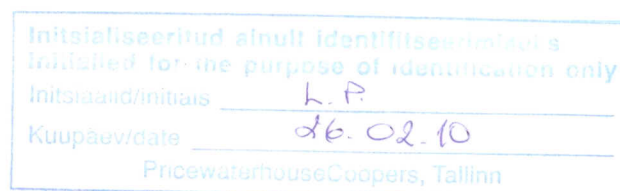 Initsialiseeritud ainult identifitseerimiseks
Initialled for the purpose of identification only
Initsiaalid/initials L. P.
Kuupäev/date 26.02.10
PricewaterhouseCoopers, Tallinn